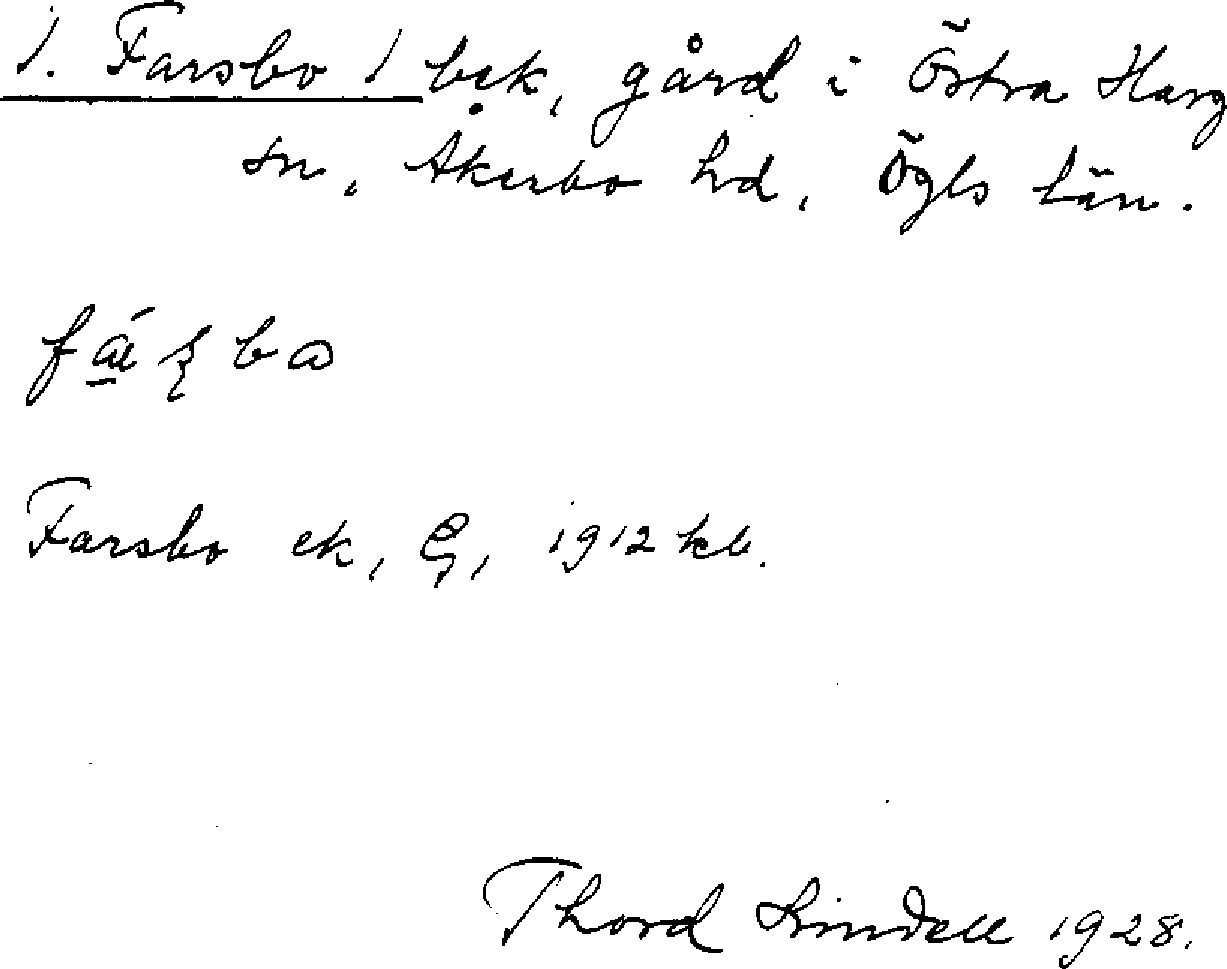 1. Farsbo 1 bek, gård i Östra Harg
sn, Åkerbo hd, Ögls län.
Farsbo ek, 1912 kb.
Thord Lindell 1928.